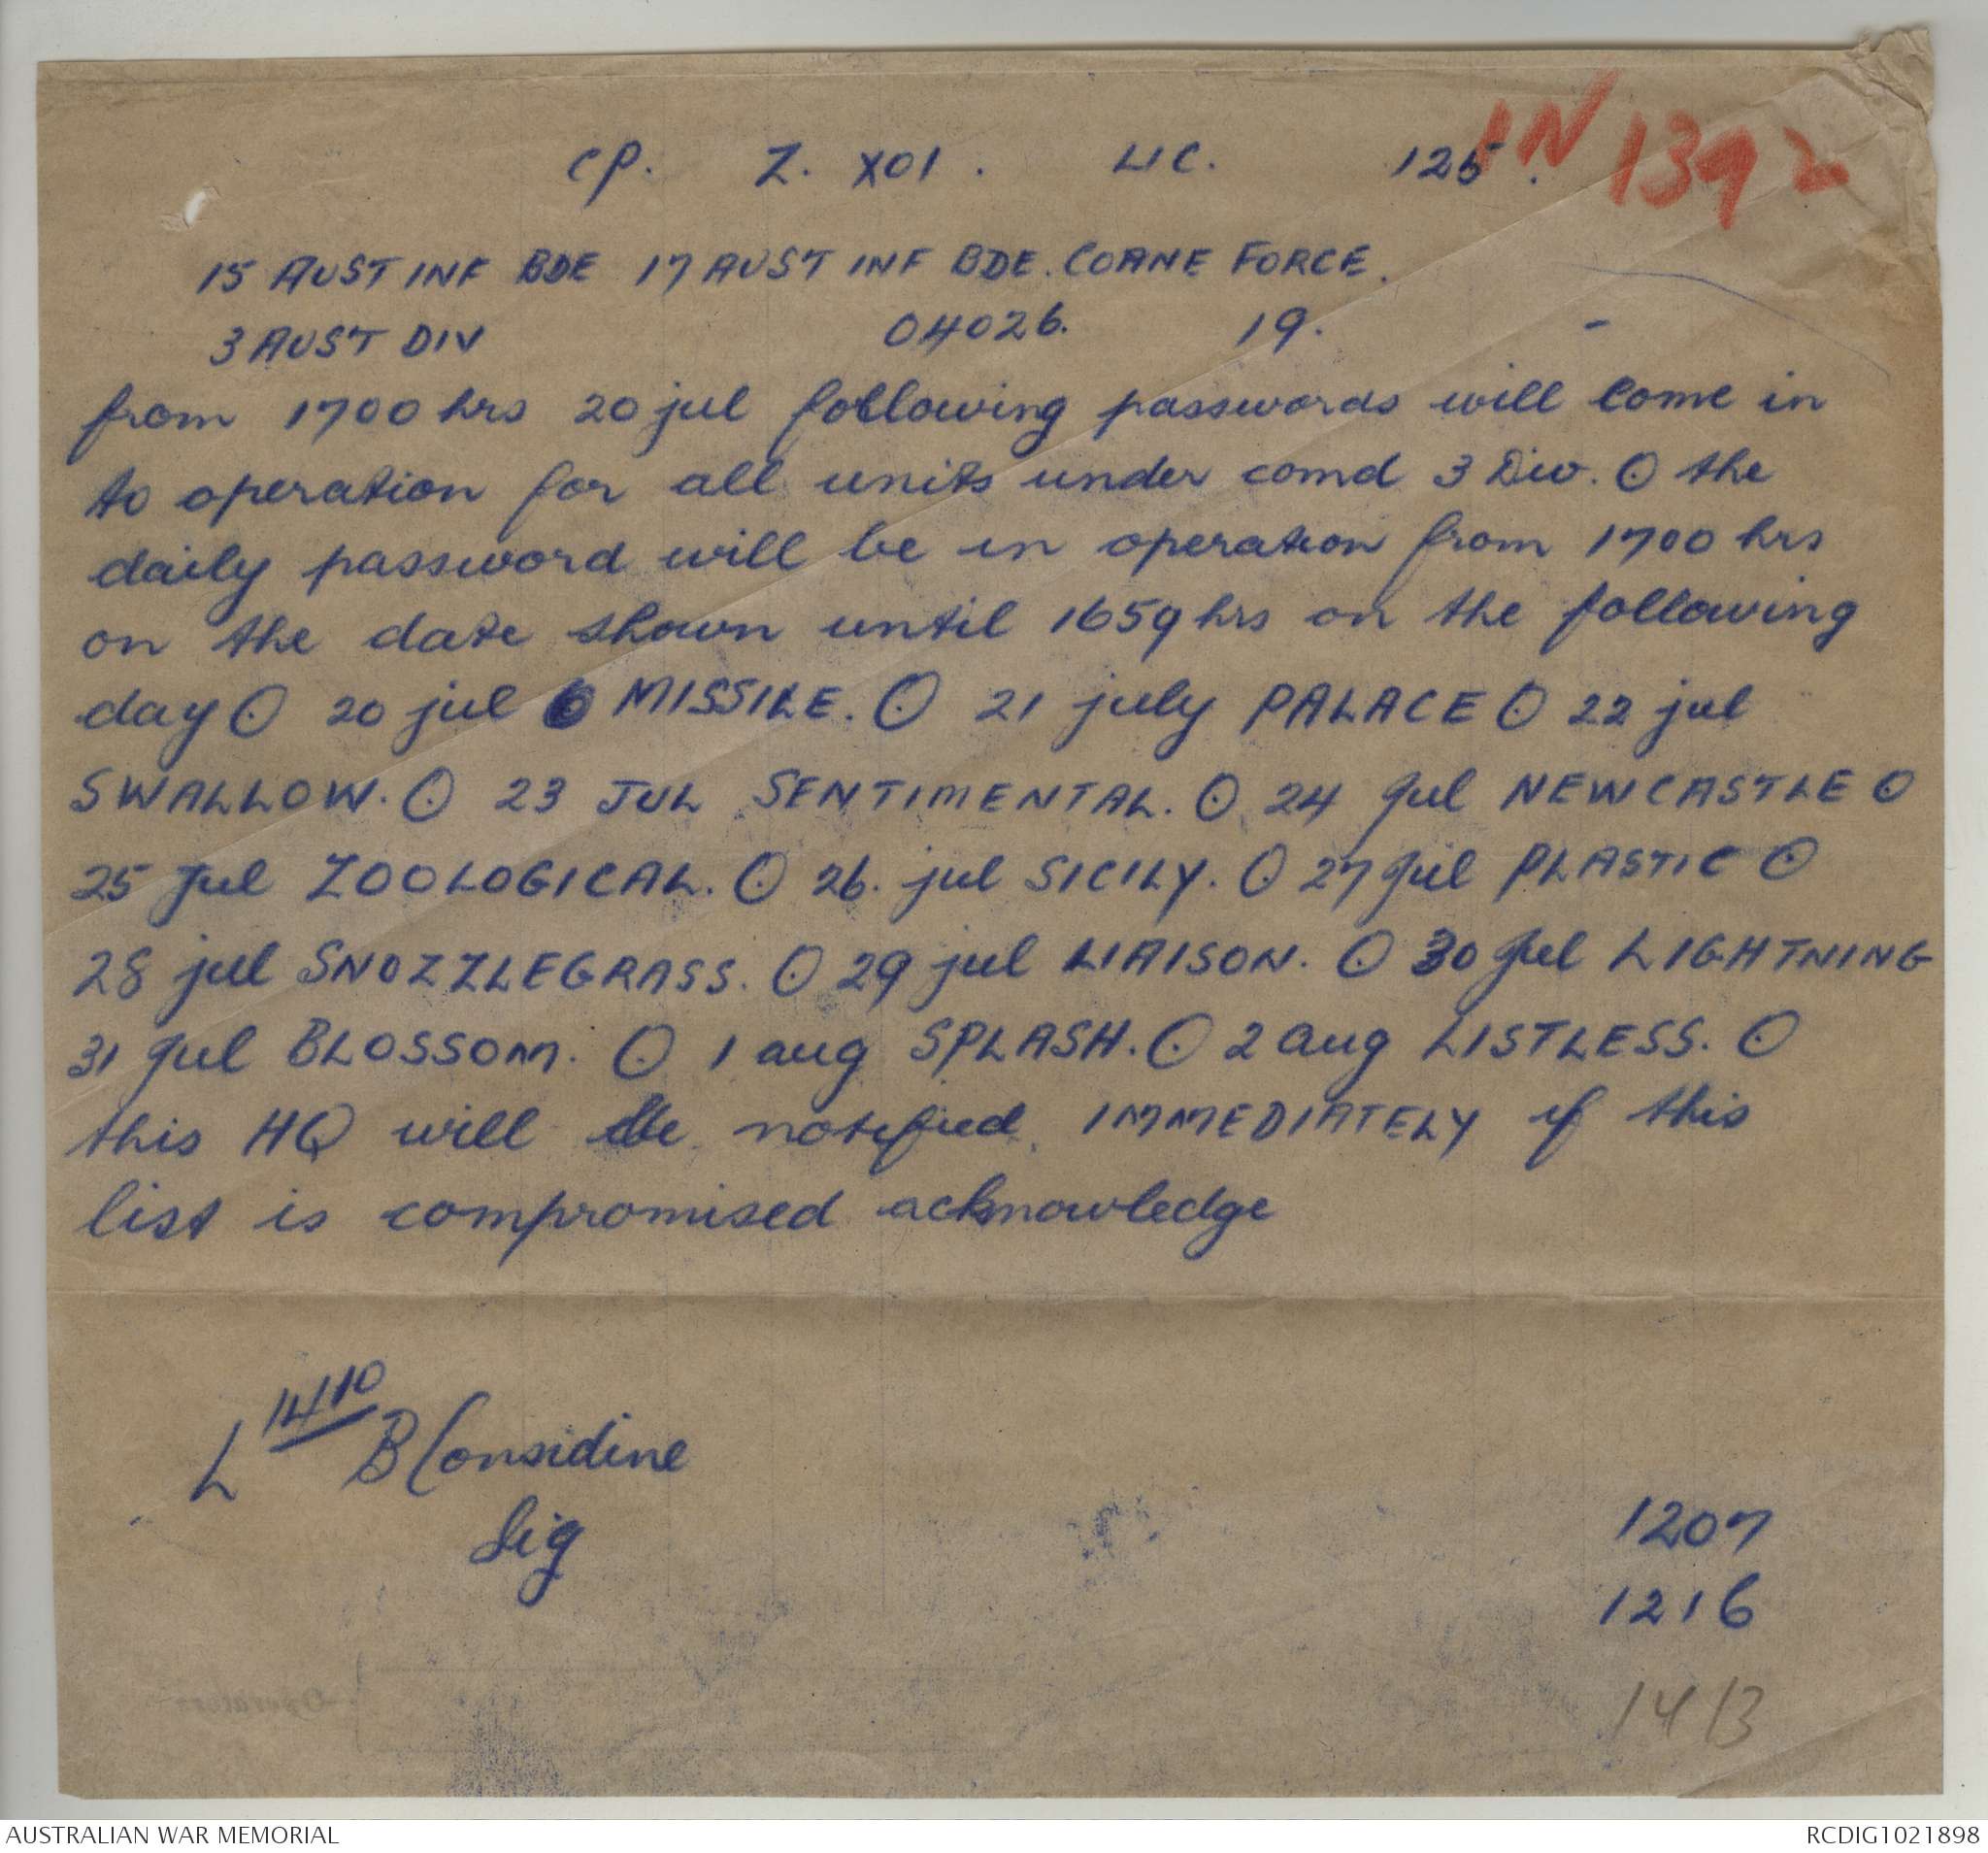 IN 1392
CP. Z. XO1. LIC. 125.
15 AUST INF BDE 17 AUST INF BDE. COANE FORCE.
3 AUST DIV 04026. 19. -
from 1700 hrs 20 jul following passwords will come in
to operation for all units under comd 3 Div. ⊙ the
daily password will be in operation from 1700 hrs
on the date shown until 1659 hrs on the following
day ⊙ 20 jul MISSILE. ⊙ 21 july PALACE ⊙ 22 jul
SWALLOW. ⊙ 23 JUL SENTIMENTAL. ⊙ 24 Jul NEWCASTLE ⊙
25 Jul ZOOLOGICAL. ⊙ 26. jul SICILY. ⊙ 27 Jul PLASTIC ⊙
28 jul SNOZZLEGRASS. ⊙ 29 jul LIAISON. ⊙ 30 Jul LIGHTNING
31 Jul BLOSSOM. ⊙ 1 aug SPLASH. ⊙ 2 aug LISTLESS. ⊙
this HQ will be notified IMMEDIATELY if this
list is compromised acknowledge
L 1410 B Considine
Sig
1207
1216
1413
Operators
AUSTRALIAN WAR MEMORIAL RCDIG1021898